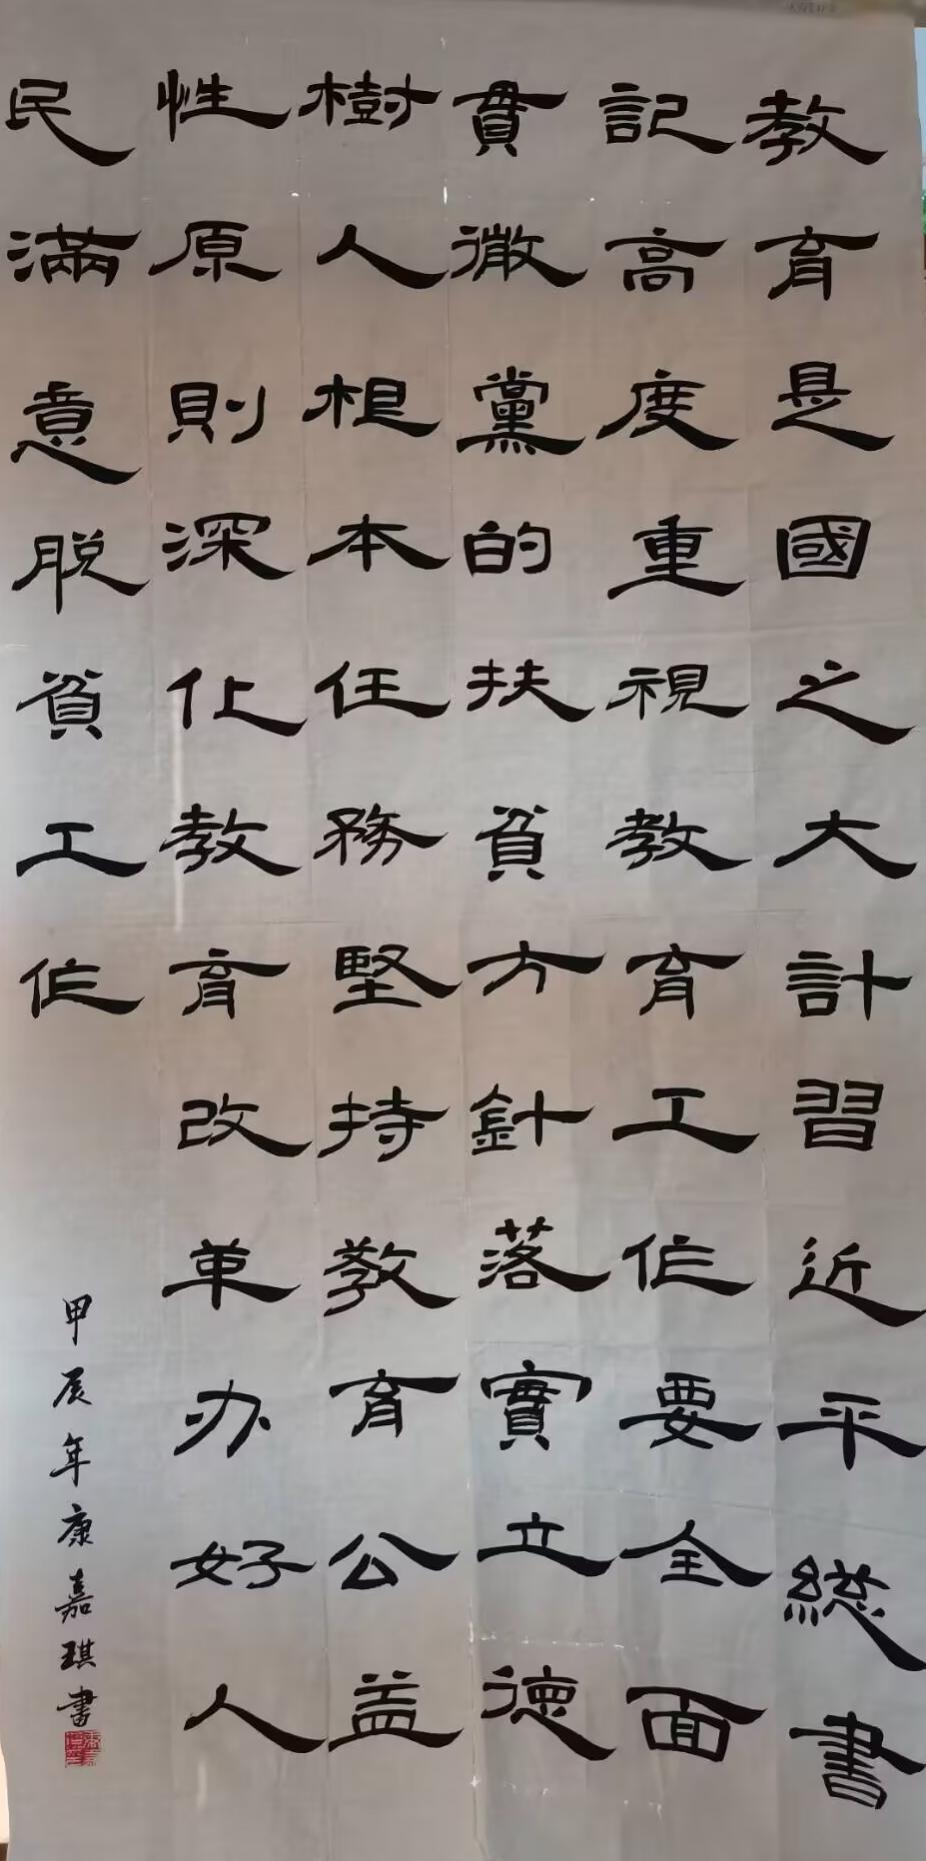 教育是國之大計習近平総書
記高度重視教育工作要全面
貫徹黨的扶貧方針落實立徳
樹人根本任務堅持教育公益
性原則深化教育改革办好人
民滿意脱貧工作
甲辰年康嘉琪書